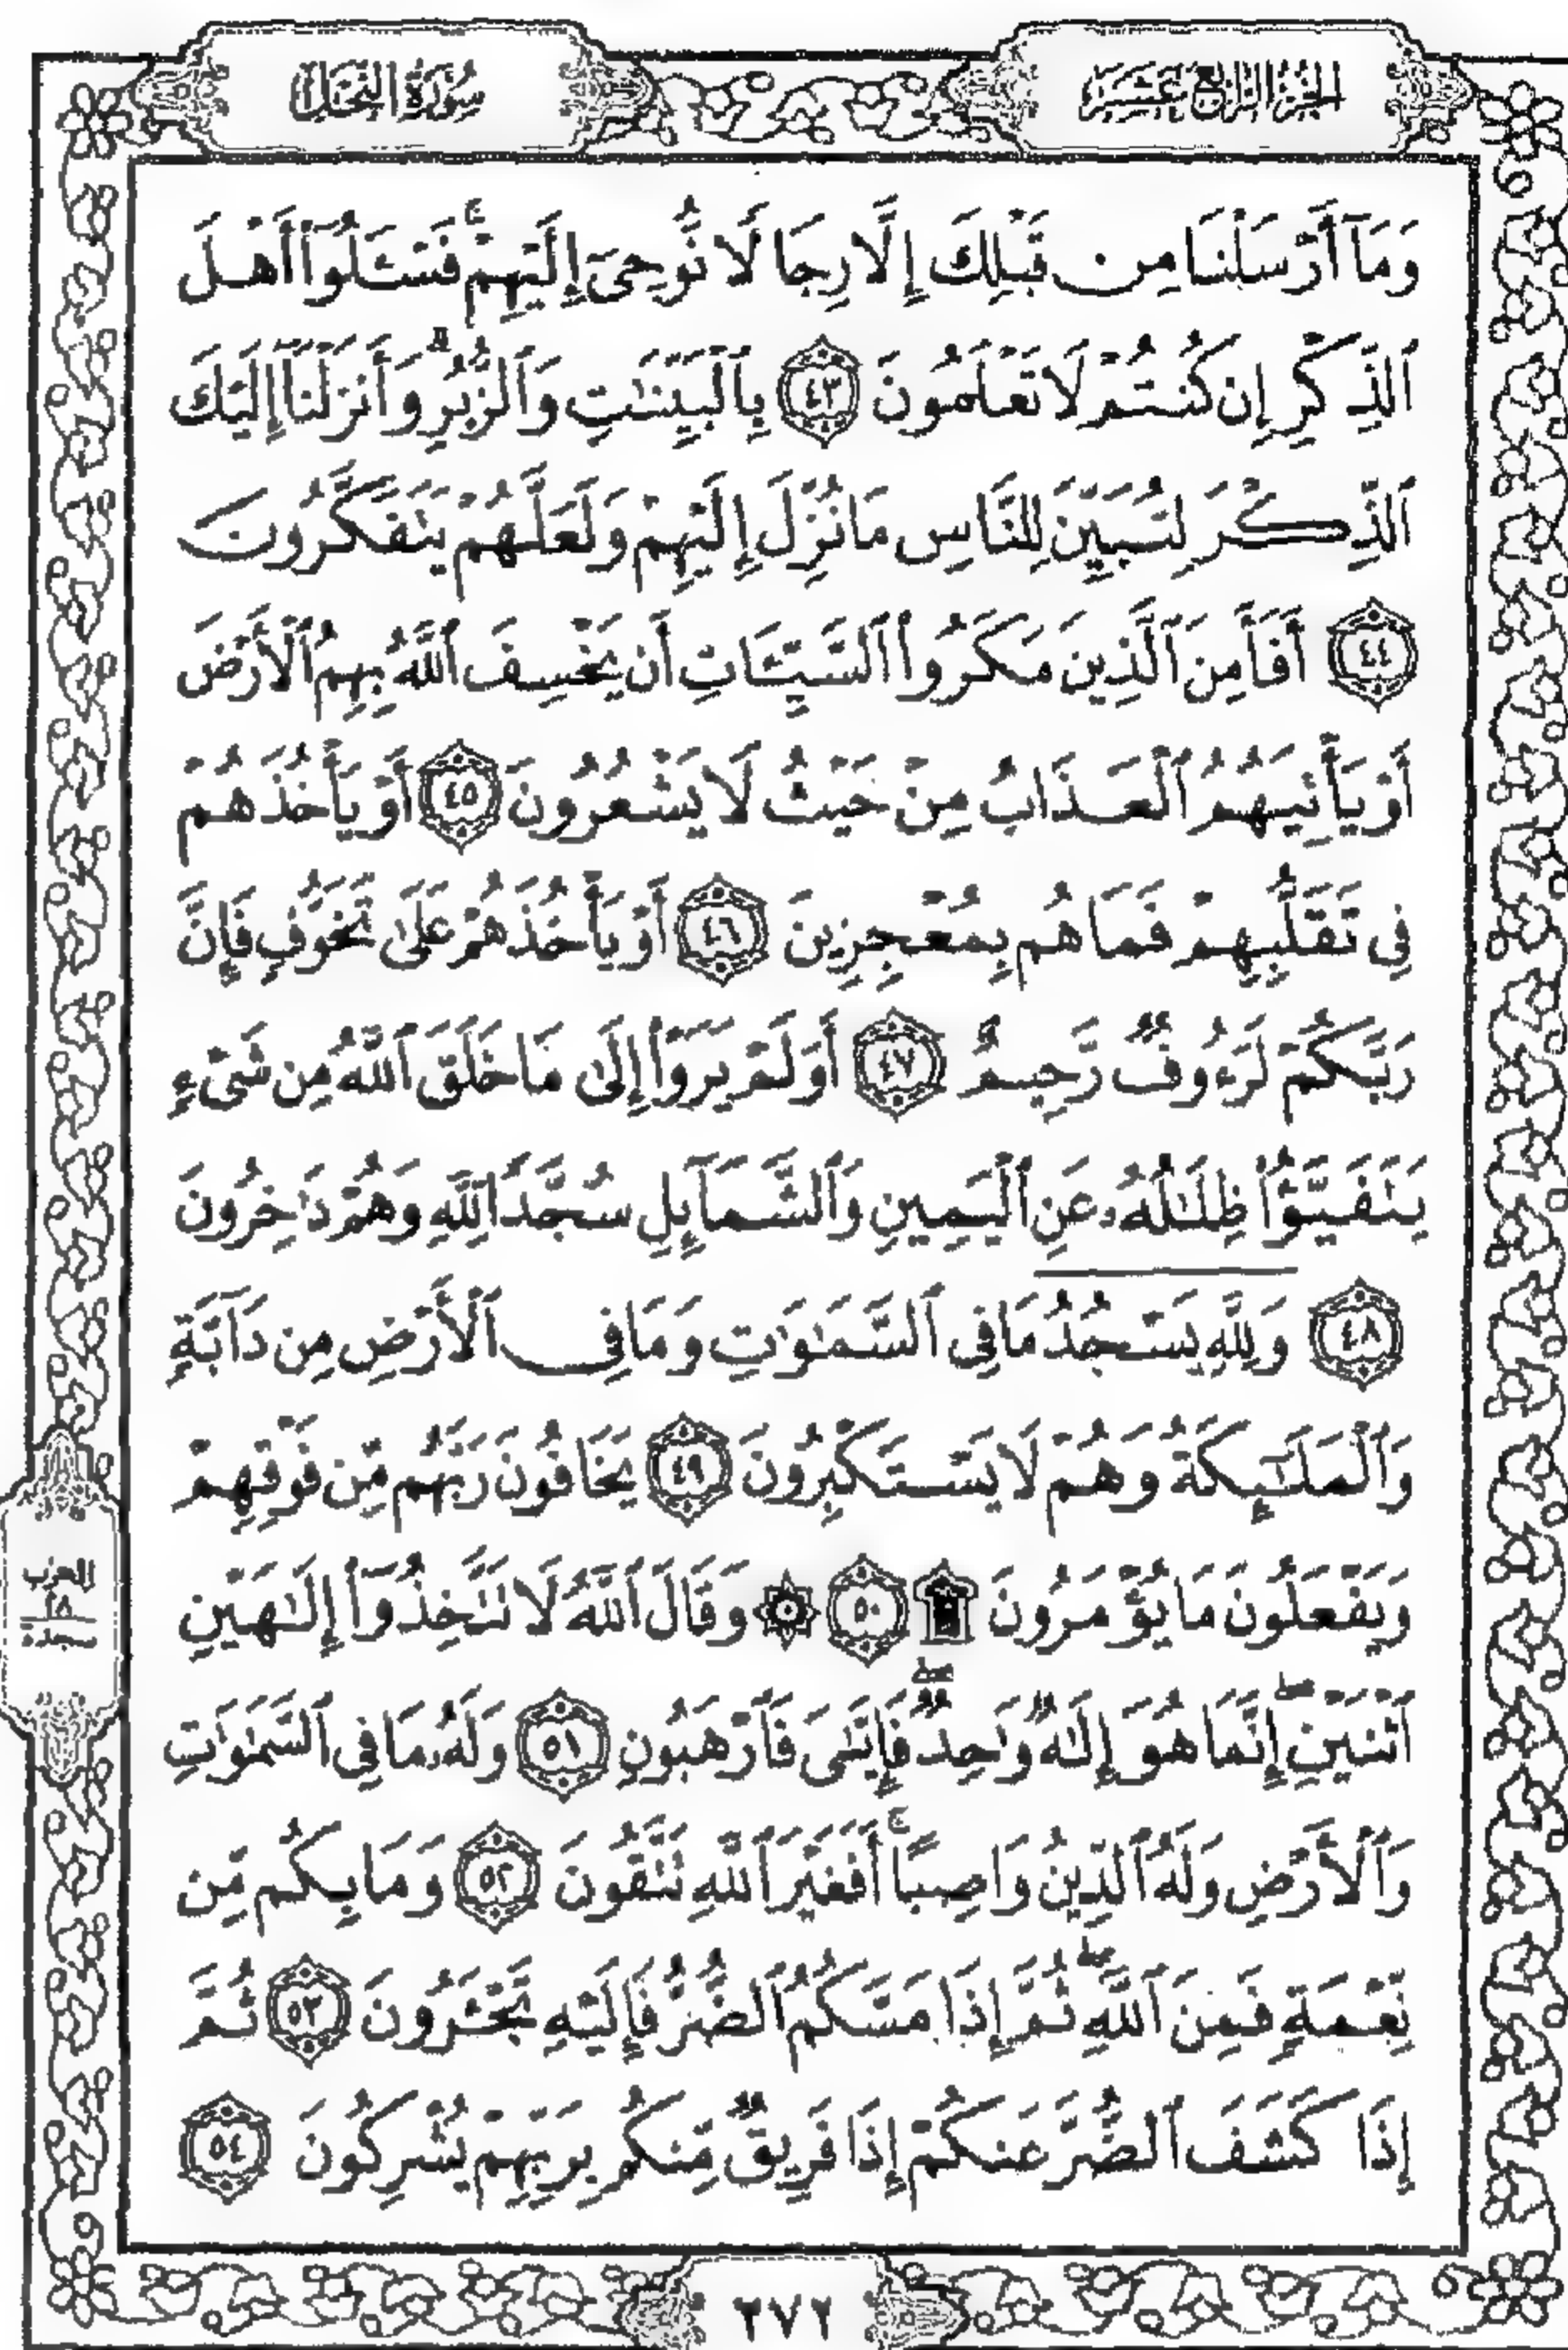 الجزء الرابع عشر
سورة النحل
وَمَآ أَرْسَلْنَا مِن قَبْلِكَ إِلَّا رِجَالًا نُّوحِىٓ إِلَيْهِمْ ۚ فَسْـَٔلُوٓا۟ أَهْلَ
ٱلذِّكْرِ إِن كُنتُمْ لَا تَعْلَمُونَ ٤٣ بِٱلْبَيِّنَـٰتِ وَٱلزُّبُرِ ۗ وَأَنزَلْنَآ إِلَيْكَ
ٱلذِّكْرَ لِتُبَيِّنَ لِلنَّاسِ مَا نُزِّلَ إِلَيْهِمْ وَلَعَلَّهُمْ يَتَفَكَّرُونَ
٤٤ أَفَأَمِنَ ٱلَّذِينَ مَكَرُوا۟ ٱلسَّيِّـَٔاتِ أَن يَخْسِفَ ٱللَّهُ بِهِمُ ٱلْأَرْضَ
أَوْ يَأْتِيَهُمُ ٱلْعَذَابُ مِنْ حَيْثُ لَا يَشْعُرُونَ ٤٥ أَوْ يَأْخُذَهُمْ
فِى تَقَلُّبِهِمْ فَمَا هُم بِمُعْجِزِينَ ٤٦ أَوْ يَأْخُذَهُمْ عَلَىٰ تَخَوُّفٍ فَإِنَّ
رَبَّكُمْ لَرَءُوفٌ رَّحِيمٌ ٤٧ أَوَلَمْ يَرَوْا۟ إِلَىٰ مَا خَلَقَ ٱللَّهُ مِن شَىْءٍ
يَتَفَيَّؤُا۟ ظِلَـٰلُهُۥ عَنِ ٱلْيَمِينِ وَٱلشَّمَآئِلِ سُجَّدًا لِّلَّهِ وَهُمْ دَٰخِرُونَ
٤٨ وَلِلَّهِ يَسْجُدُ مَا فِى ٱلسَّمَـٰوَٰتِ وَمَا فِى ٱلْأَرْضِ مِن دَآبَّةٍ
وَٱلْمَلَـٰٓئِكَةُ وَهُمْ لَا يَسْتَكْبِرُونَ ٤٩ يَخَافُونَ رَبَّهُم مِّن فَوْقِهِمْ
وَيَفْعَلُونَ مَا يُؤْمَرُونَ ۩ ٥٠ ۞ وَقَالَ ٱللَّهُ لَا تَتَّخِذُوٓا۟ إِلَـٰهَيْنِ
ٱثْنَيْنِ ۖ إِنَّمَا هُوَ إِلَـٰهٌ وَٰحِدٌ ۖ فَإِيَّـٰىَ فَٱرْهَبُونِ ٥١ وَلَهُۥ مَا فِى ٱلسَّمَـٰوَٰتِ
وَٱلْأَرْضِ وَلَهُ ٱلدِّينُ وَاصِبًا ۚ أَفَغَيْرَ ٱللَّهِ تَتَّقُونَ ٥٢ وَمَا بِكُم مِّن
نِّعْمَةٍ فَمِنَ ٱللَّهِ ۖ ثُمَّ إِذَا مَسَّكُمُ ٱلضُّرُّ فَإِلَيْهِ تَجْـَٔرُونَ ٥٣ ثُمَّ
إِذَا كَشَفَ ٱلضُّرَّ عَنكُمْ إِذَا فَرِيقٌ مِّنكُم بِرَبِّهِمْ يُشْرِكُونَ ٥٤
الحزب
سجدة
٢٧٢